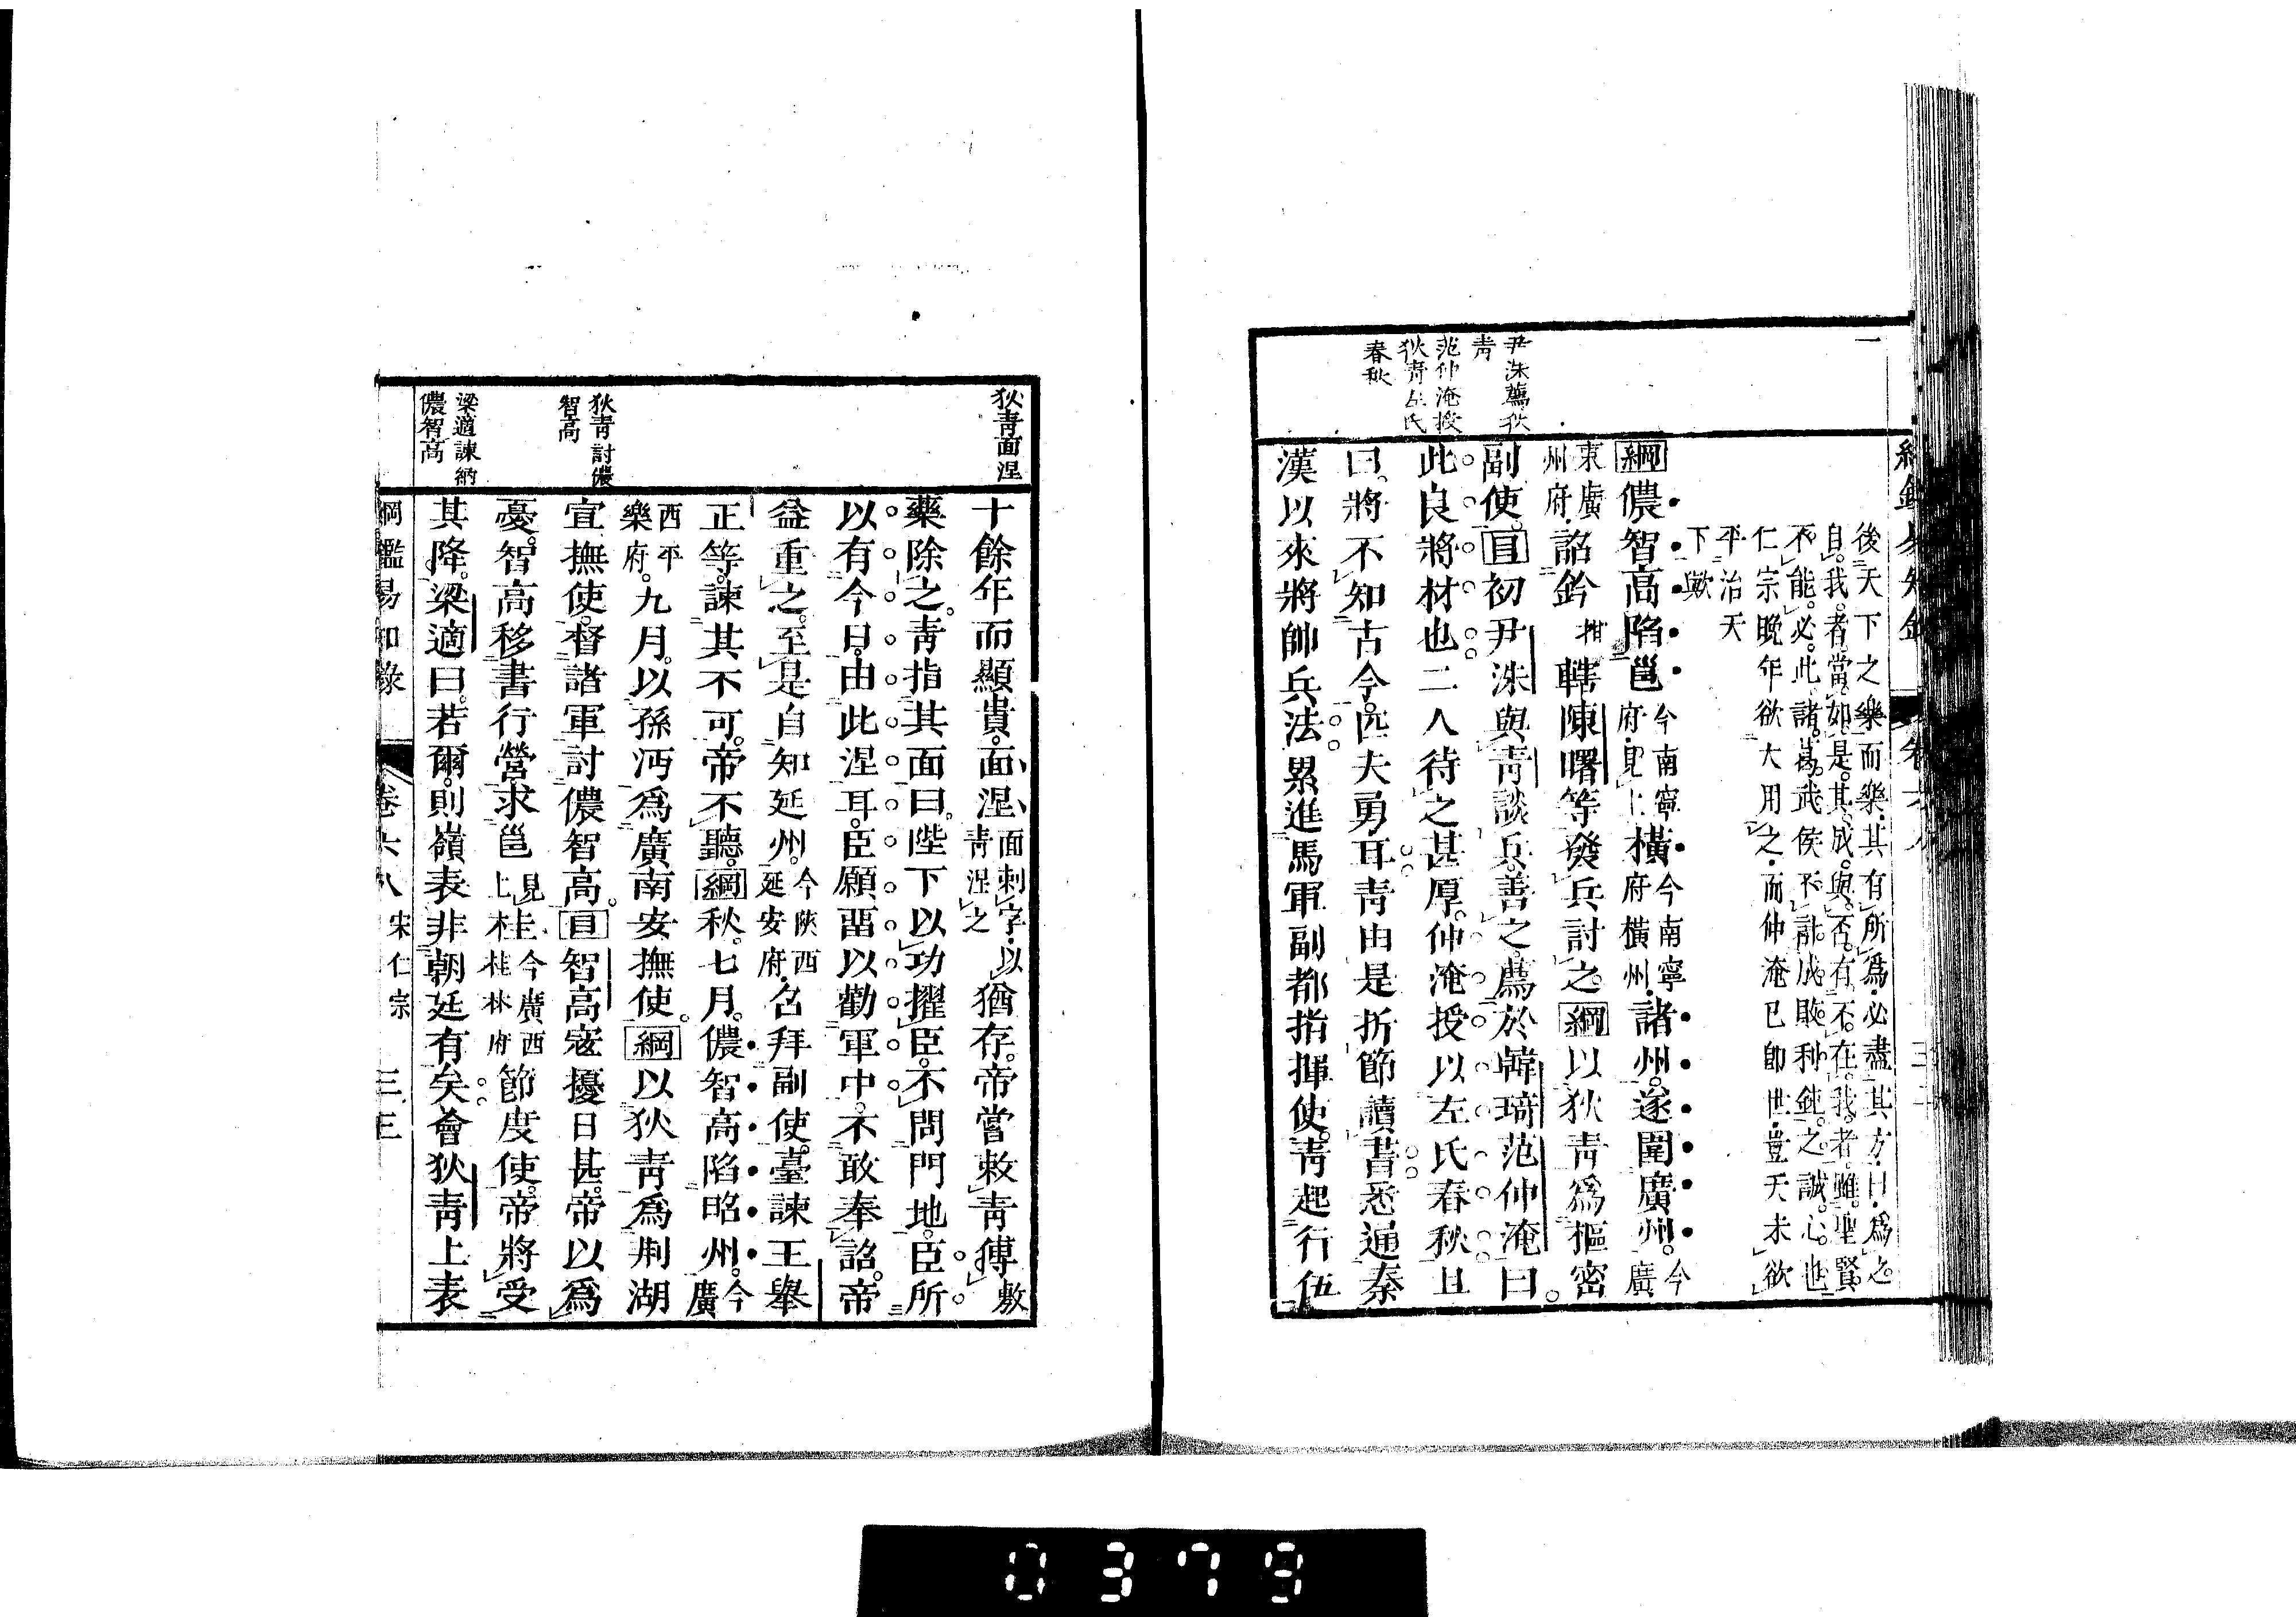 後天下之樂而樂其有所爲必盡其方曰爲之
自我者當如是其成與否有不在我者雖聖賢
不能必此諸葛武侯不計成敗利鈍之誠心也
仁宗晚年欲大用之而仲淹已卽世豈天未欲
平治天
下歟
綱儂智高陷邕今南寧府見上橫今南寧府橫州諸州遂圍廣州今廣
東廣州府詔鈐拑轄陳曙等發兵討之綱以狄靑爲樞密
副使目初尹洙與靑談兵善之薦於韓琦范仲淹曰
此良將材也二人待之甚厚仲淹授以左氏春秋且
曰將不知古今匹夫勇耳靑由是折節讀書悉通秦
漢以來將帥兵法累進馬軍副都指揮使靑起行伍
尹洙薦狄
靑
范仲淹授
狄靑左氏
春秋
十餘年而顯貴面涅面刺字以靑涅之猶存帝嘗敕靑傅敷
藥除之靑指其面曰陛下以功擢臣不問門地臣所
以有今日由此涅耳臣願畱以勸軍中不敢奉詔帝
益重之至是自知延州今陝西延安府召拜副使臺諫王舉
正等諫其不可帝不聽綱秋七月儂智高陷昭州今廣
西平樂府九月以孫沔爲廣南安撫使綱以狄靑爲荆湖
宣撫使督諸軍討儂智高目智高寇擾日甚帝以爲
憂智高移書行營求邕見上桂今廣西桂林府節度使帝將受
其降梁適曰若爾則嶺表非朝廷有矣會狄靑上表
狄靑面涅
狄靑討儂
智高
梁適諫納
儂智高
綱鑑易知錄 卷六八 宋仁宗 三三
0379